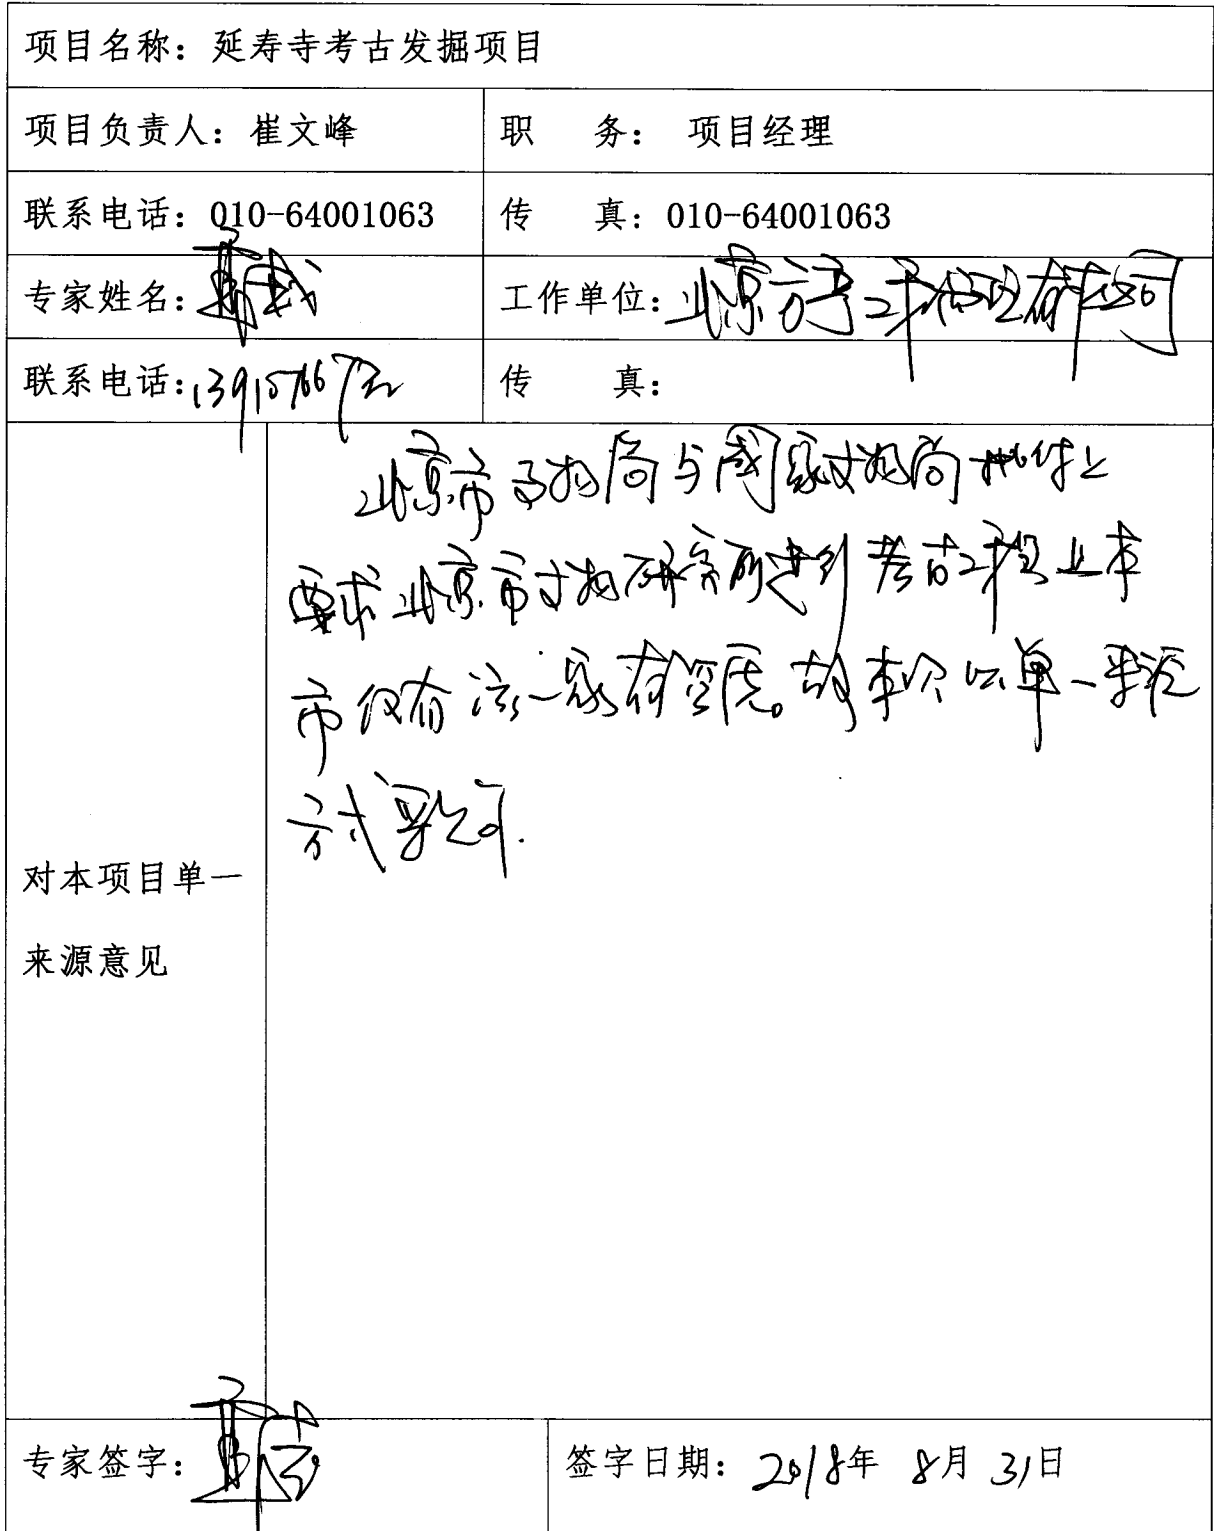 项目名称：延寿寺考古发掘项目
项目负责人：崔文峰 职 务： 项目经理
联系电话：010-64001063 传 真：010-64001063
专家姓名： 工作单位：北京 有限公司
联系电话： 传 真：
北京市文物局与国家文物局批件上
要求北京市文物研究所进行考古工程且本
市仅有该一家有资质。故本次以单一来源
方式 可.
对本项目单一
来源意见
专家签字： 签字日期：2018年 8月 31日